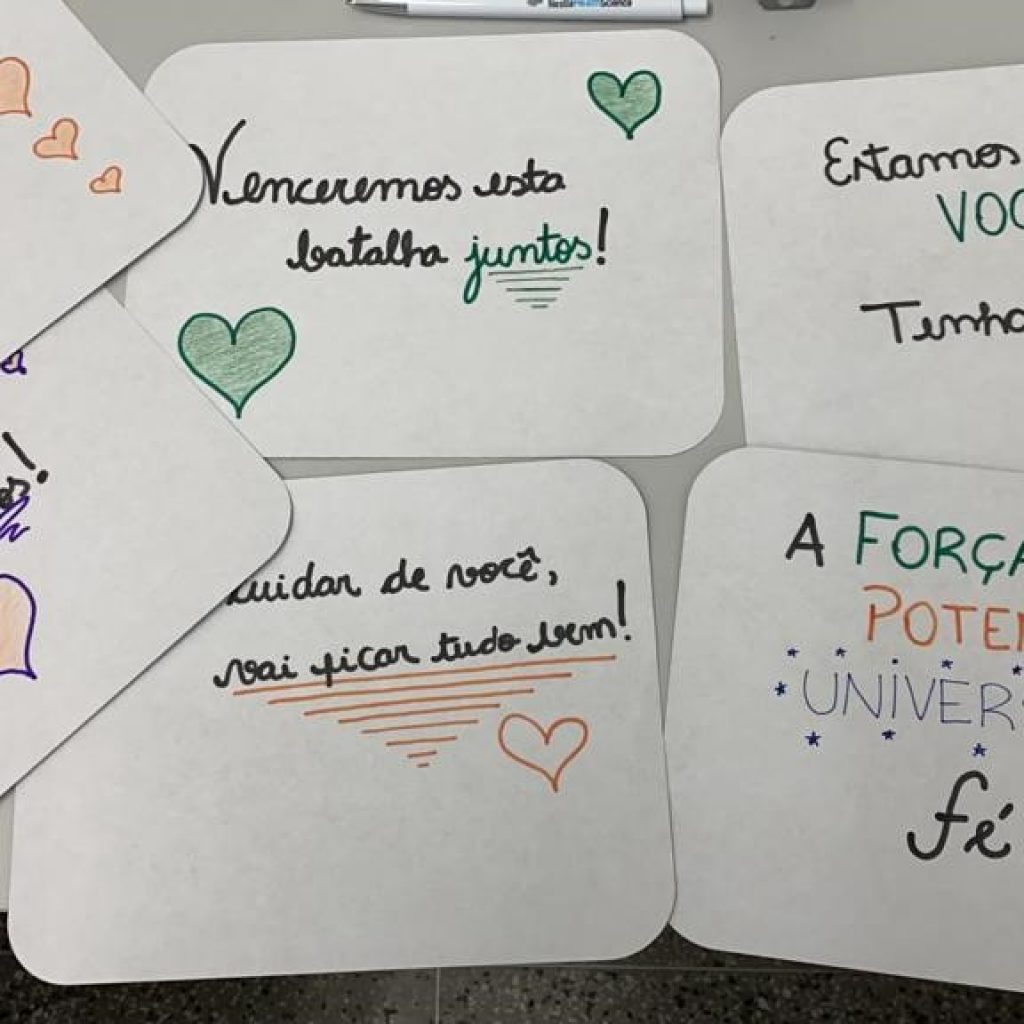 Venceremos esta
batalha juntos!
Estamos
VOC
Tenha
cuidar de você,
vai ficar tudo bem!
A FORÇA
POTEN
UNIVERS
fé